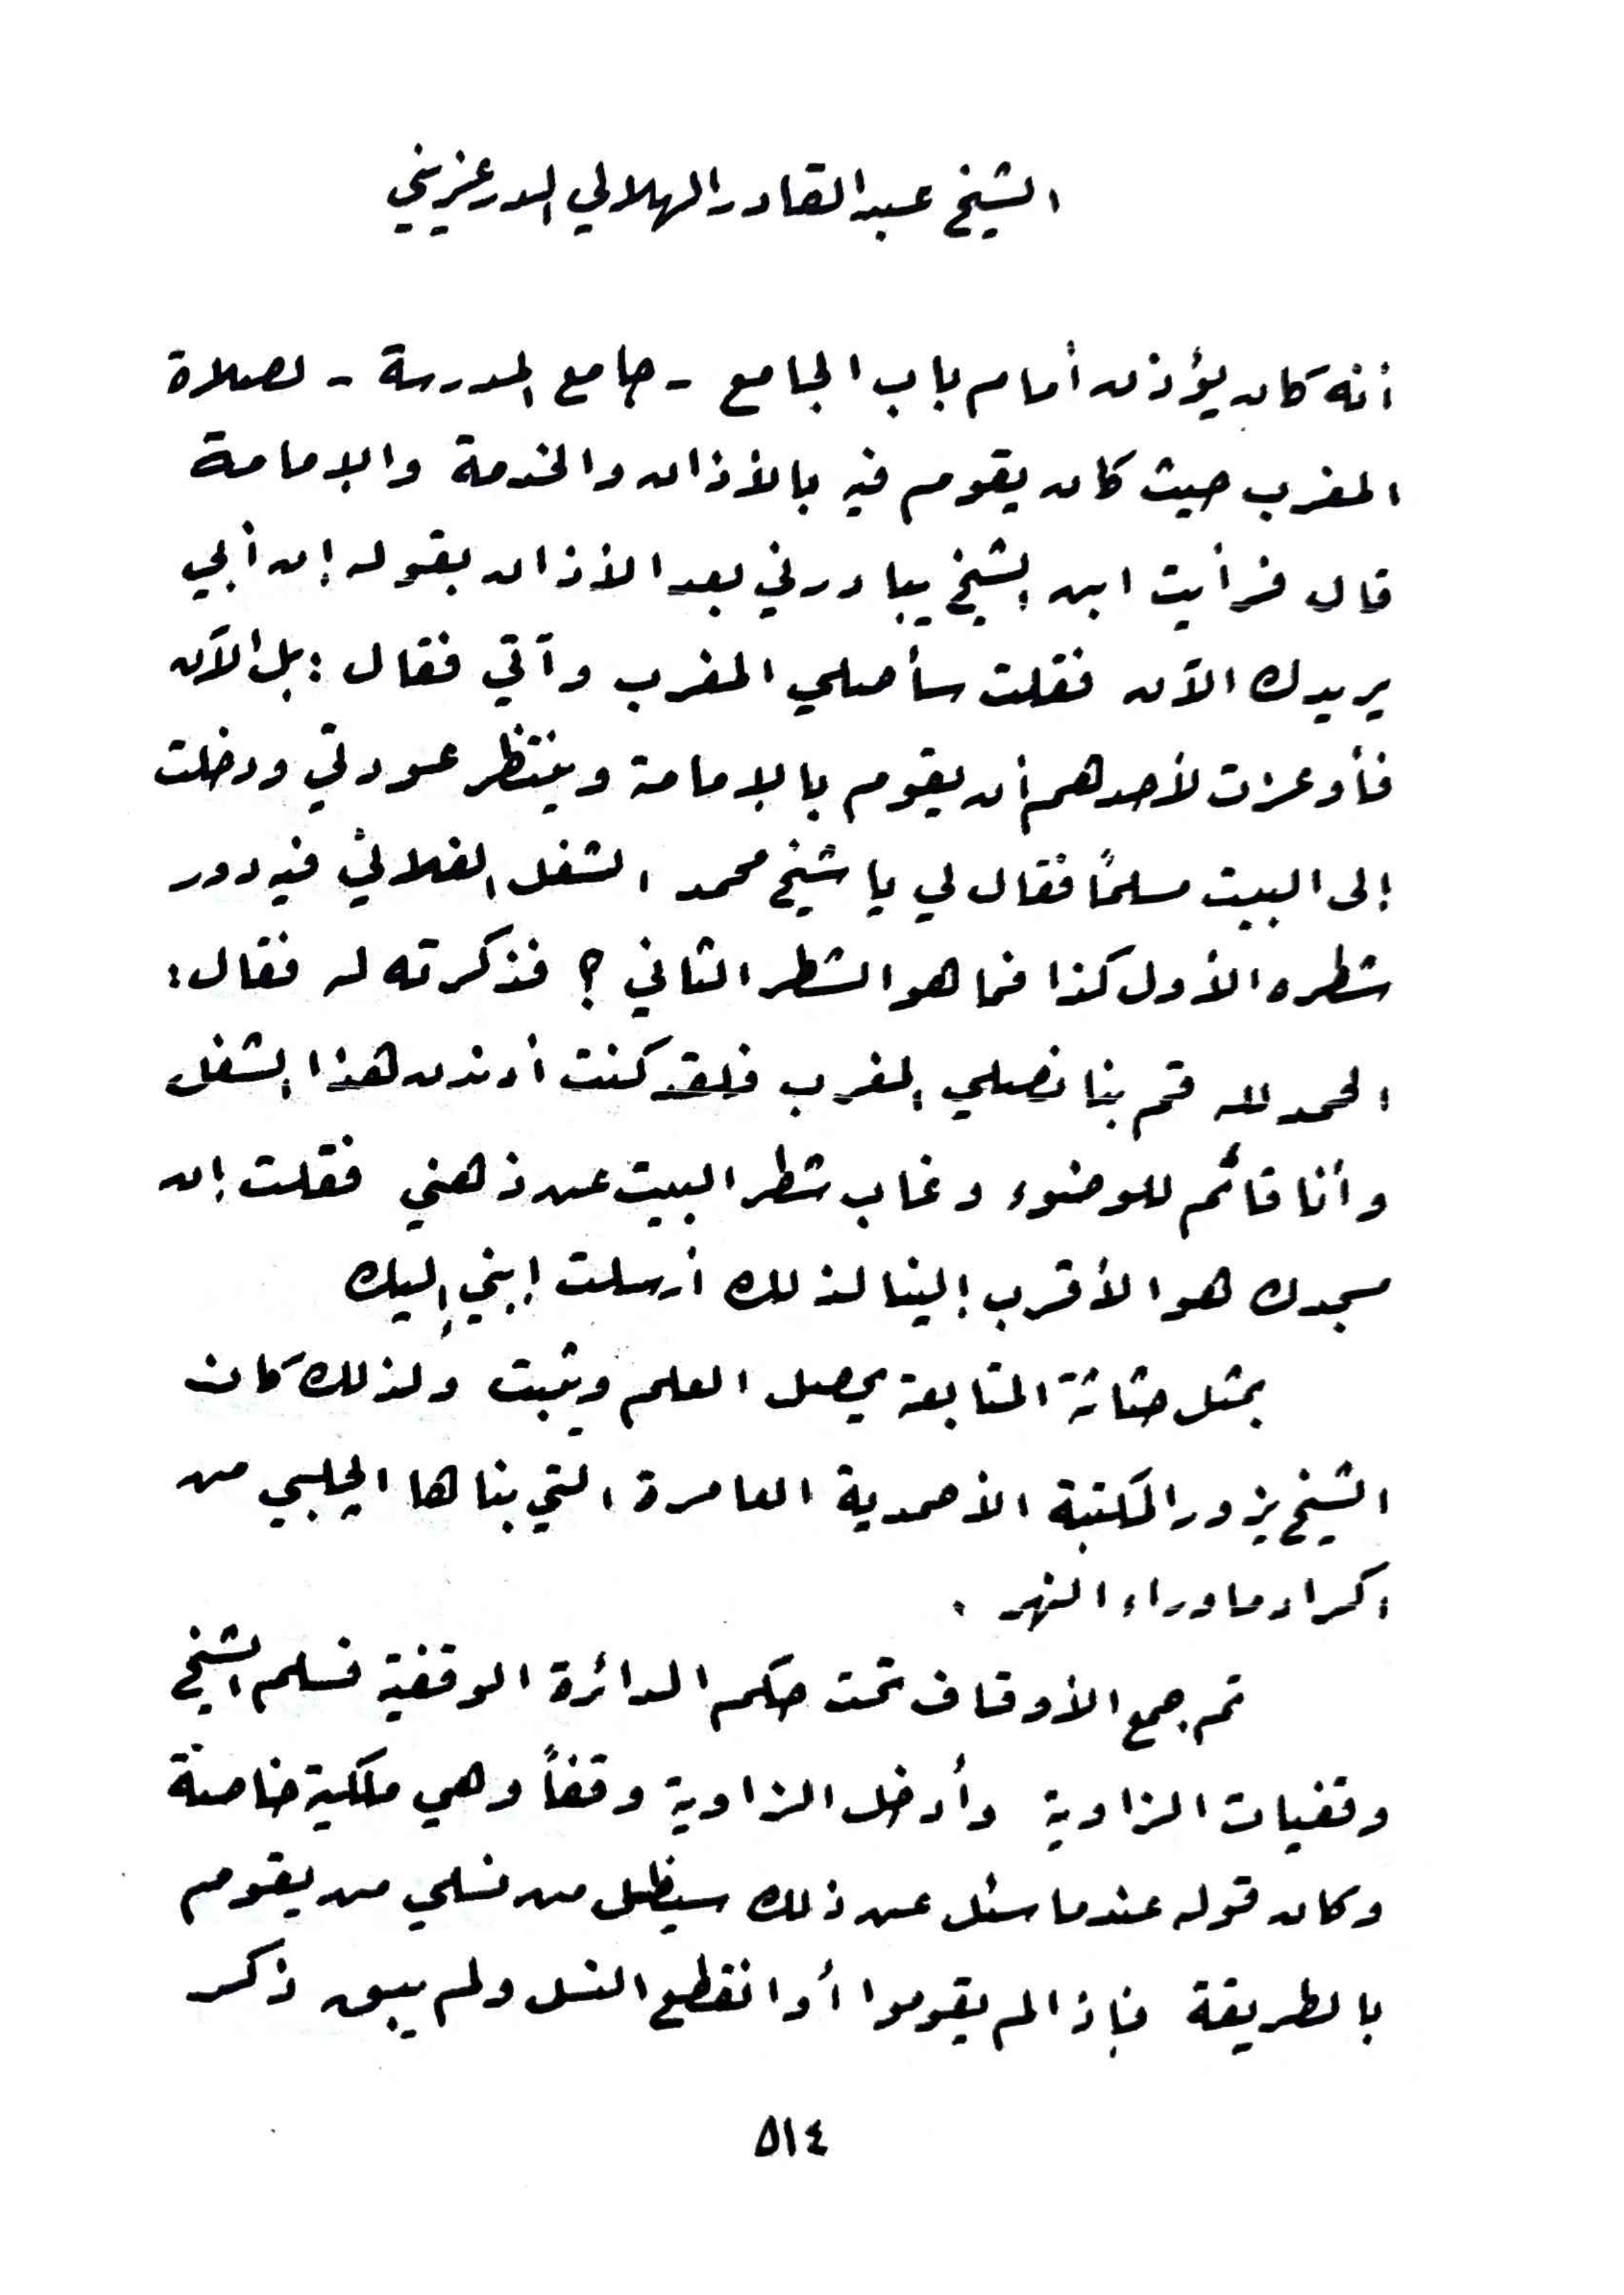 الشيخ عبدالقادر الهلالي الدرعزيني
أنه كان يؤذن أمام باب الجامع - جامع المدرسة - لصلاة
المغرب حيث كان يقوم فيه بالأذان والخدمة والإمامة
قال فرأيت ابن الشيخ يبادرني بعد الأذان بقوله إن أبي
يريدك الآن فقلت سأصلي المغرب وآتي فقال : بل الآن
فأوعزت لأحدهم أن يقوم بالإمامة وينتظر عودتي ودخلت
إلى البيت مسلماً فقال لي يا شيخ محمد الشغل الفلاني فيه دور
شطره الأول كذا فما هو الشطر الثاني ؟ فذكرته له فقال :
الحمد لله قم بنا نصلي المغرب فلقد كنت أدندن هذا الشغل
وأنا قائم للوضوء وغاب شطر البيت عن ذهني فقلت إن
مسجدك هو الأقرب إلينا لذلك أرسلت إبني إليك
بمثل حثاثة المتابعة يحصل العلم ويثبت ولذلك كان
الشيخ يزور المكتبة الأحمدية العامرة التي بناها الجلبي من
اكراد ماوراء النهر .
تم جمع الأوقاف تحت حكم الدائرة الوقفية فسلم الشيخ
وقفيات الزاوية وأدخل الزاوية وقفاً وهي ملكية خاصة
وكان قوله عندما سئل عن ذلك سيظل من نسلي من يقوم
بالطريقة فإذا لم يقوموا أو انقطع النسل ولم يبق ذكر
٥١٤